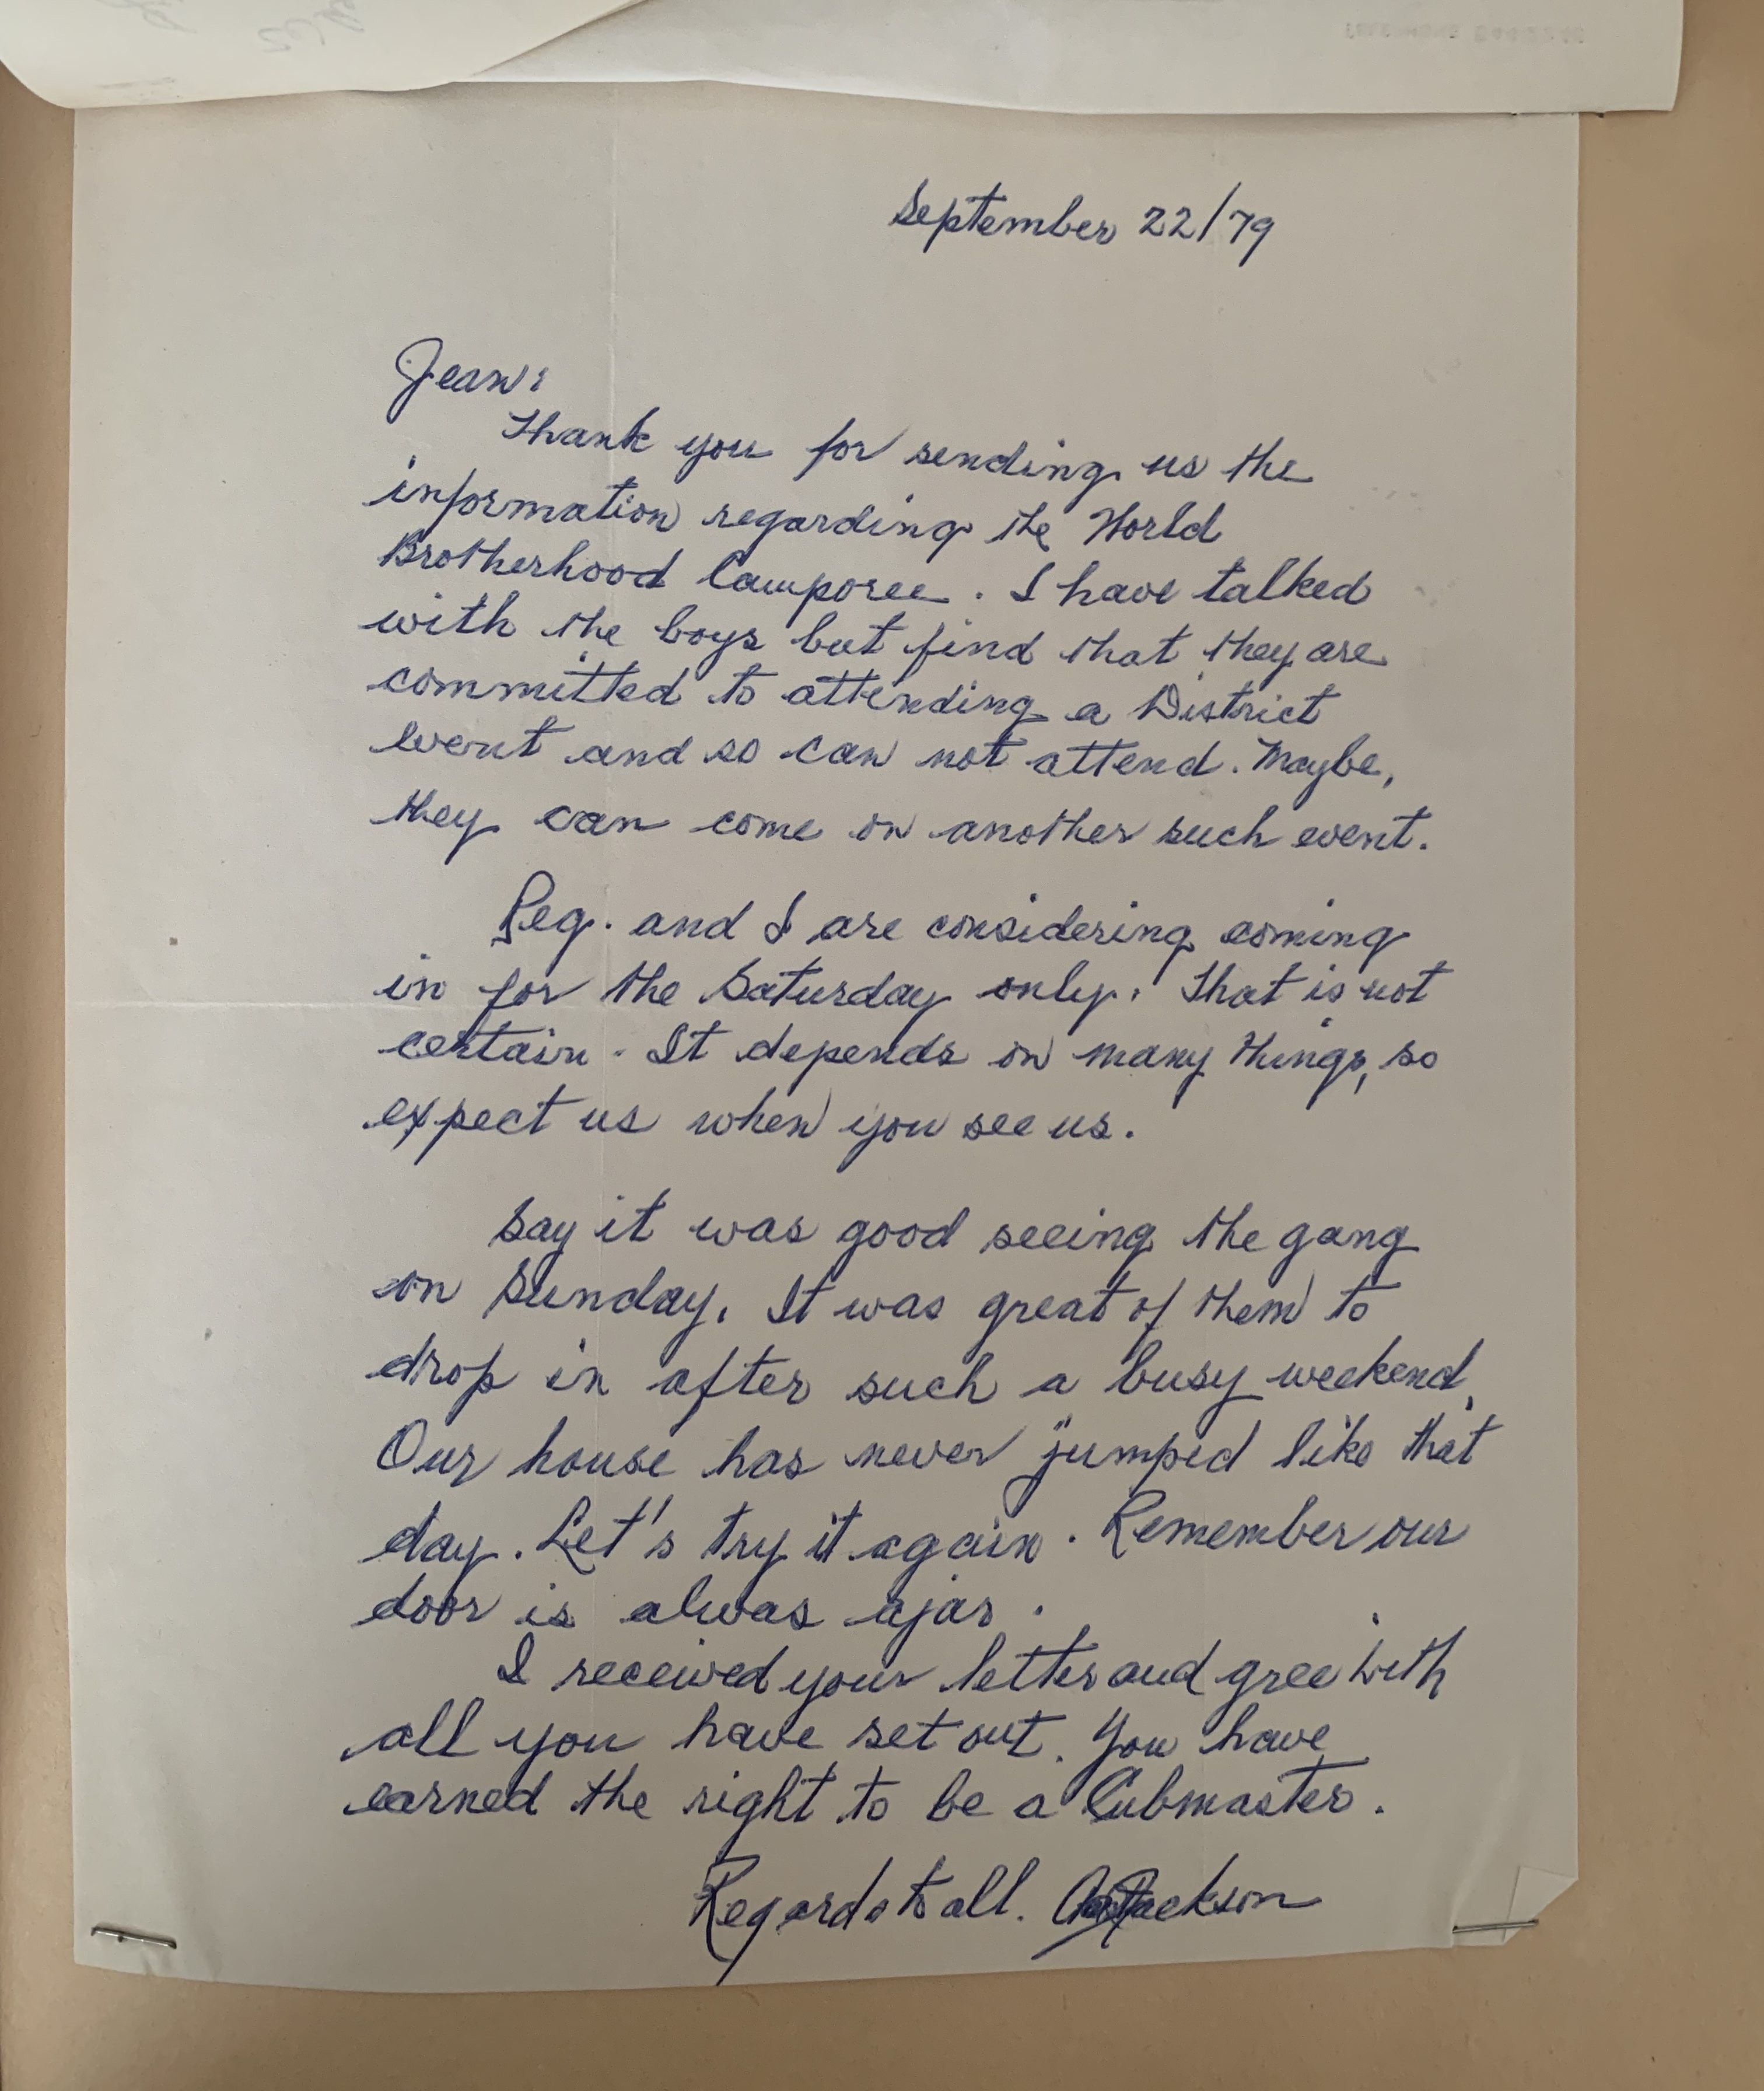 September 22/79
Jean:
Thank you for sending us the
information regarding the World
Brotherhood Camporee. I have talked
with the boys but find that they are
committed to attending a District
event and so can not attend. Maybe,
they can come on another such event.
Peg. and I are considering coming
in for the Saturday only. That is not
certain. It depends on many things, so
expect us when you see us.
Say it was good seeing the gang
on Sunday. It was great of them to
drop in after such a busy weekend.
Our house has never "jumped like that
day. Let's try it again. Remember our
door is alwas ajar.
I received your letter and gree with
all you have set out. You have
earned the right to be a Cubmaster.
Regards to all. Jackson